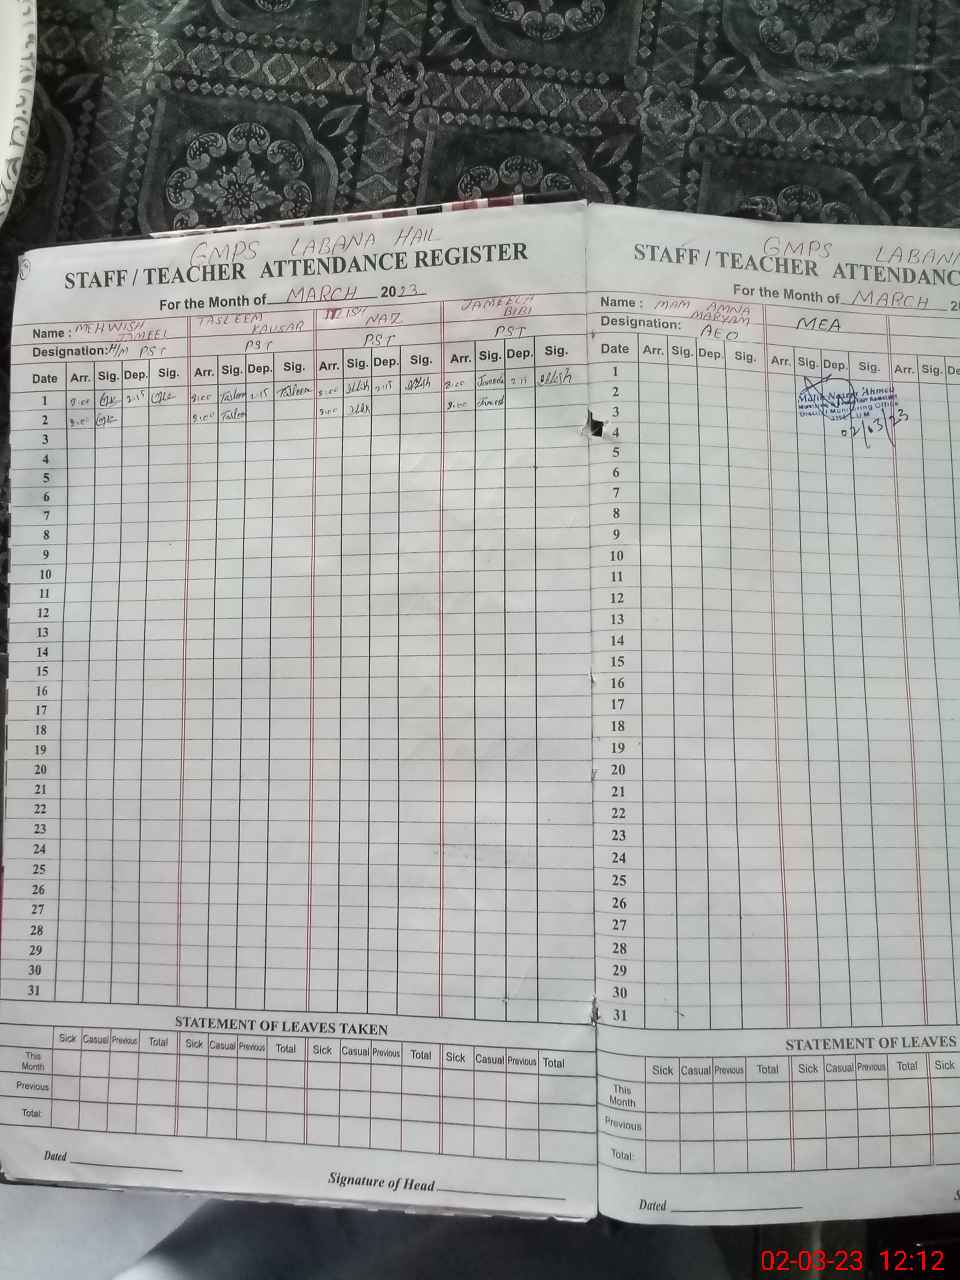 GMPS LABANA HAIL
STAFF / TEACHER ATTENDANCE REGISTER
For the Month of MARCH 2023
Name : MEHWISH JAMEEL TASLEEM KAUSAR NAZ JAMEELA BIBI
Designation: H/M PST PST PST PST
Date Arr. Sig. Dep. Sig. Arr. Sig. Dep. Sig. Arr. Sig. Dep. Sig. Arr. Sig. Dep. Sig.
1 8:00 2:15 8:00 Tasleem 2:15 Tasleem 8:00 2:15 8:00 2:15
2 8:00 8:00 Tasleem 8:00 8:00
3
4
5
6
7
8
9
10
11
12
13
14
15
16
17
18
19
20
21
22
23
24
25
26
27
28
29
30
31
STATEMENT OF LEAVES TAKEN
Sick Casual Previous Total Sick Casual Previous Total Sick Casual Previous Total Sick Casual Previous Total
This Month
Previous
Total:
Dated
Signature of Head
GMPS LABANA
STAFF / TEACHER ATTENDANC
For the Month of MARCH 20
Name : MAM AMNA MARYAM MEA
Designation: AEO
Date Arr. Sig. Dep. Sig. Arr. Sig. Dep. Sig. Arr. Sig. D
1
2 Ahmed
3 District Monitoring Office
4 02/03/23
5
6
7
8
9
10
11
12
13
14
15
16
17
18
19
20
21
22
23
24
25
26
27
28
29
30
31
STATEMENT OF LEAVES
Sick Casual Previous Total Sick Casual Previous Total Sick
This Month
Previous
Total:
Dated
02-03-23 12:12